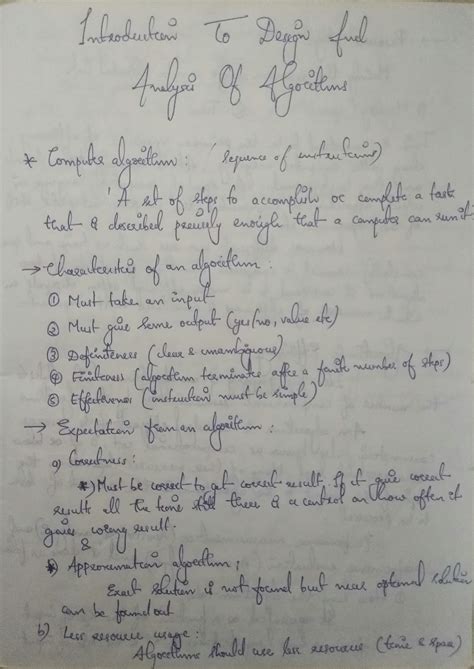 Introduction To Design And
Analysis Of Algorithms
* Computer algorithm : 'sequence of instructions)
'A set of steps to accomplish or complete a task
that is described precisely enough that a computer can run it'.
→ Characteristics of an algorithm :
① Must take an input
② Must give some output (yes/no, value etc)
③ Definiteness (clear & unambiguous)
④ Finiteness (algorithm terminates after a finite number of steps)
⑤ Effectiveness (instruction must be simple)
→ Expectation from an algorithm :
a) Correctness :
*) Must be correct to get correct result. If it give correct
results all the time there is a control on how often it
gives wrong result.
&
*) Approximation algorithm ;
Exact solution is not found but near optimal solution
can be found out
b) Less resource usage :
Algorithms should use less resources (time & space)